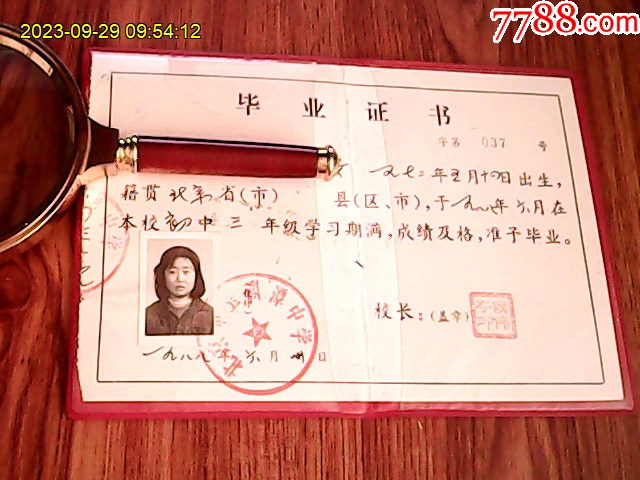 2023-09-29 09:54:12
7788.com
毕业证书
字第 037 号
女 一九七二年五月十四日出生，
籍贯北京省(市) 县(区、市)，于一九八八年六月在
本校初中三年级学习期满，成绩及格，准予毕业。
校长：(盖章)
一九八八年六月 日